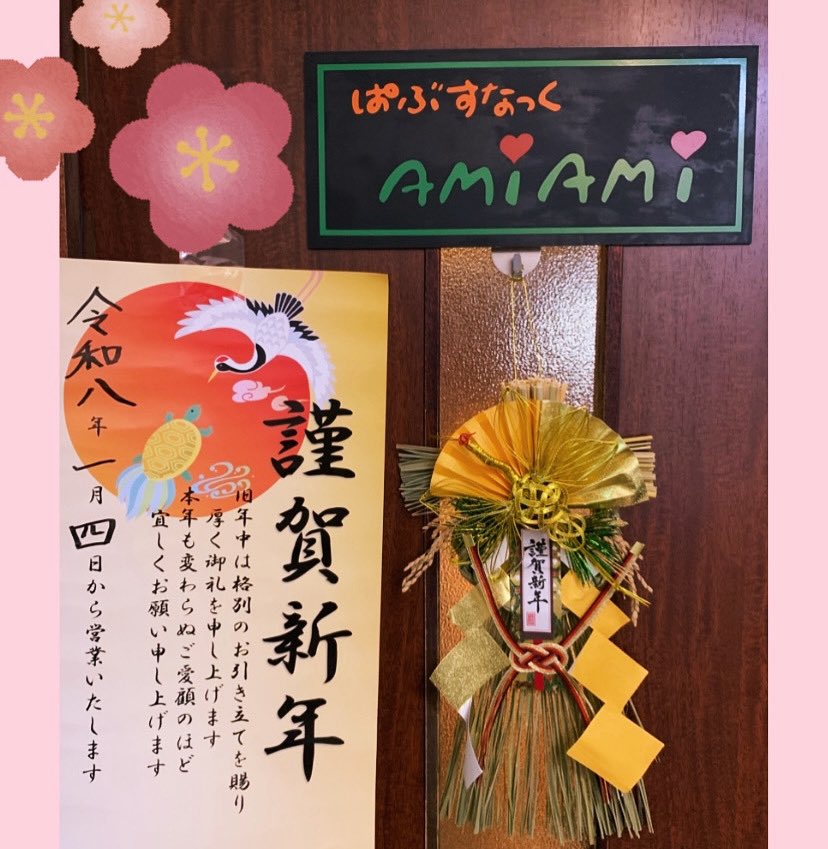 ぱぶすなっく
AMI AMI
謹賀新年
旧年中は格別のお引き立てを賜り
厚く御礼を申し上げます
本年も変わらぬご愛顧のほど
宜しくお願い申し上げます
令和八年一月四日から営業いたします
謹賀新年